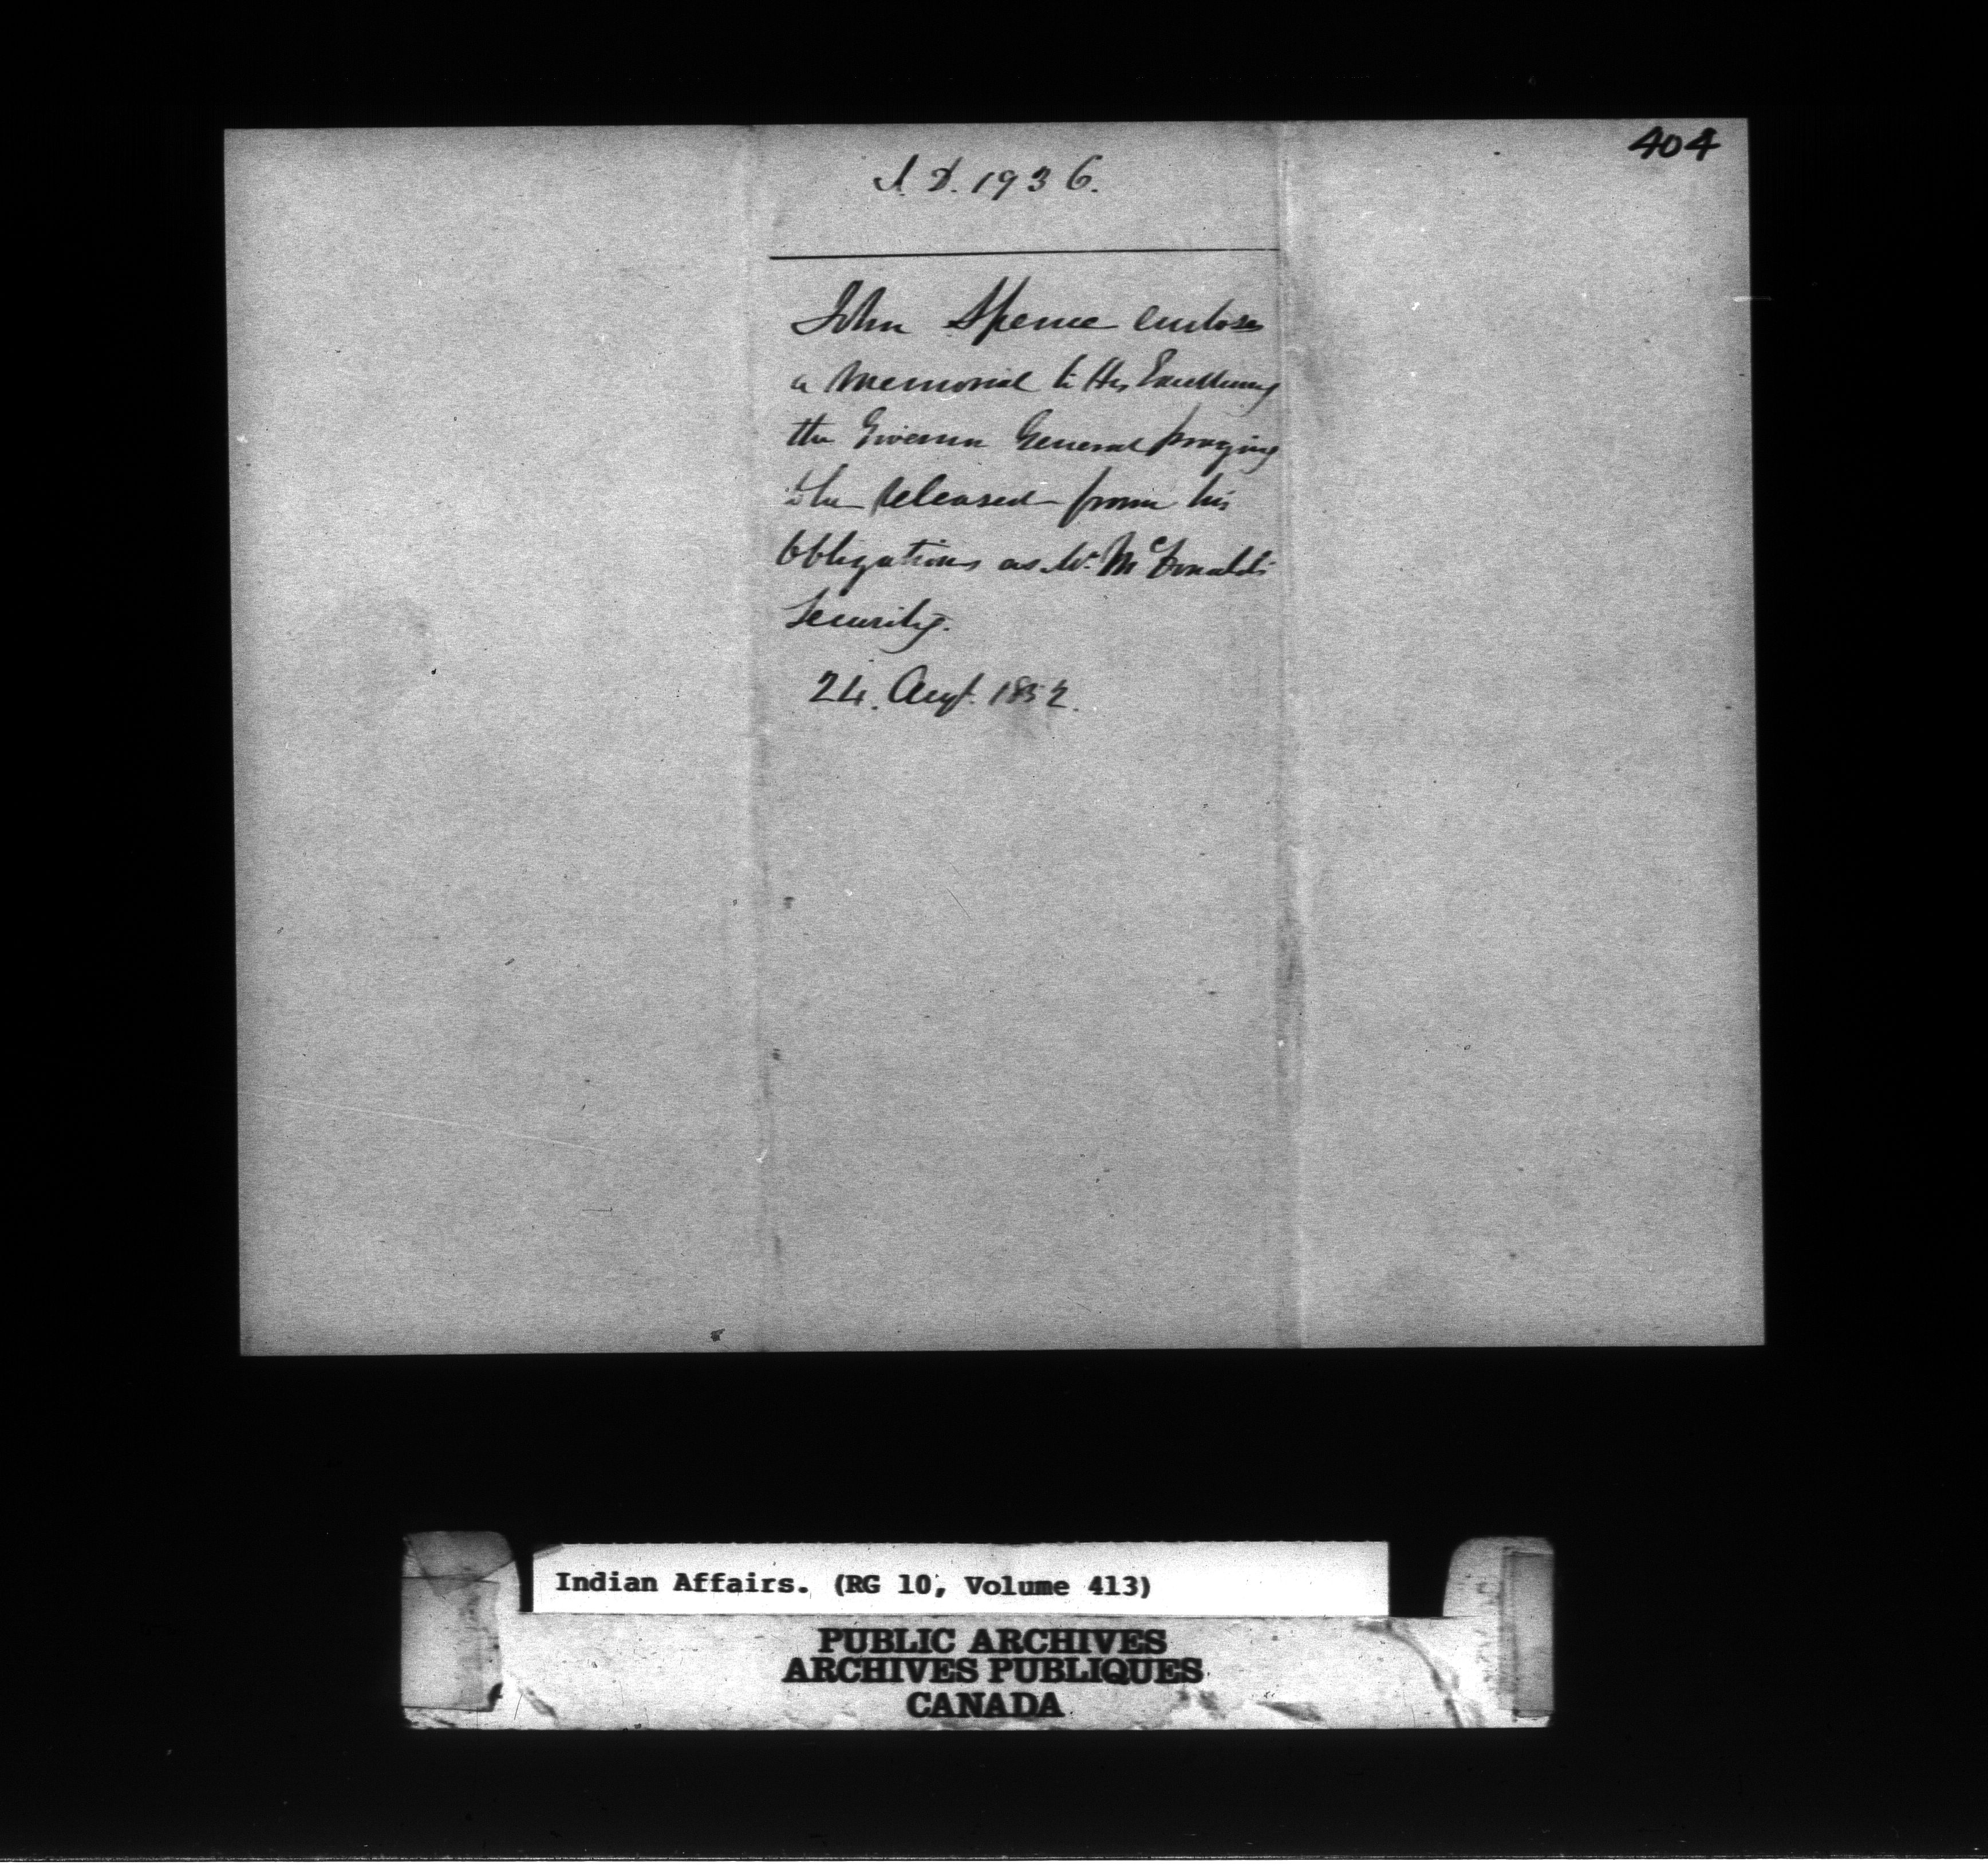 404
I. D. 1936.
John Spence encloses
a Memorial to His Excellency
the Governor General praying
to be released from his
Obligations as Mr. McDonald's
Security.
24. Augt. 1852.
Indian Affairs. (RG 10, Volume 413)
PUBLIC ARCHIVES
ARCHIVES PUBLIQUES
CANADA